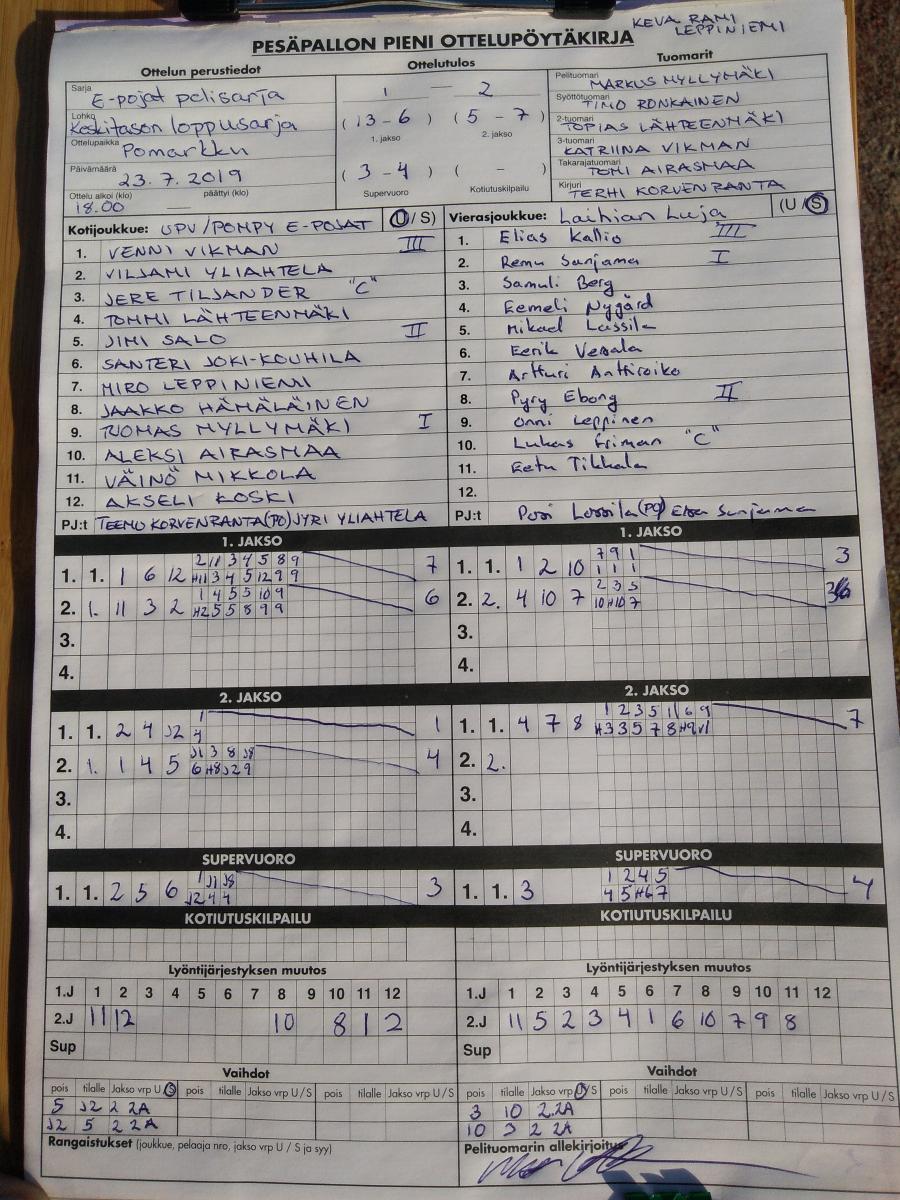 KEVA RAMI
LEPPINIEMI
PESÄPALLON PIENI OTTELUPÖYTÄKIRJA
Ottelun perustiedot
Sarja E-pojat pelisarja
Lohko Keskitason loppusarja
Ottelupaikka Pomarkku
Päivämäärä 23.7.2019
Ottelu alkoi (klo) päättyi (klo)
18.00
Ottelutulos
1 — 2
(13-6) (5-7)
1. jakso 2. jakso
(3-4) ( - )
Supervuoro Kotiutuskilpailu
Tuomarit
Pelituomari MARKUS MYLLYMÄKI
Syöttötuomari TIMO RONKAINEN
2-tuomari TOPIAS LÄHTEENMÄKI
3-tuomari KATRIINA VIKMAN
Takarajatuomari TOMI AIRASMAA
Kirjuri TERHI KORVENRANTA
Kotijoukkue: UPV/POMPY E-POJAT (U/S)
1. VENNI VIKMAN III
2. VILJAMI YLIAHTELA
3. JERE TILJANDER "C"
4. TOMMI LÄHTEENMÄKI
5. JIMI SALO II
6. SANTERI JOKI-KOUHILA
7. MIRO LEPPINIEMI
8. JAAKKO HÄMÄLÄINEN
9. TUOMAS MYLLYMÄKI I
10. ALEKSI AIRASMAA
11. VÄINÖ MIKKOLA
12. AKSELI KOSKI
PJ:t TEEMU KORVENRANTA(PO) JYRI YLIAHTELA
Vierasjoukkue: Laihian Luja (U/S)
1. Elias Kallio III
2. Remu Sanjama I
3. Samuli Berg
4. Eemeli Nygård
5. Mikael Lassila
6. Eerik Vesala
7. Artturi Anttiroiko
8. Pyry Ebong II
9. Onni Leppinen
10. Lukas Friman "C"
11. Eetu Tikkala
12.
PJ:t Pasi Lassila (PO)
1. JAKSO
1. 1. 1 6 12 2 11 3 4 5 8 9 7
H11 3 4 5 12 9 9
2. 1. 11 3 2 1 4 5 5 10 9 6
H2 5 5 8 9 9
3.
4.
1. JAKSO
1. 1. 1 2 10 7 9 1 3
1 1 1
2. 2. 4 10 7 2 3 5
10 H10 7
3.
4.
2. JAKSO
1. 1. 2 4 J2 1 1
4
2. 1. 1 4 5 J1 3 8 J8 4
6 H8 J2 9
3.
4.
2. JAKSO
1. 1. 4 7 8 1 2 3 5 11 6 9 7
H3 3 5 7 8 H9 V1
2. 2.
3.
4.
SUPERVUORO
1. 1. 2 5 6 1 J1 J8 3
J2 4 4
SUPERVUORO
1. 1. 3 1 2 4 5 4
4 5 H6 7
KOTIUTUSKILPAILU
KOTIUTUSKILPAILU
Lyöntijärjestyksen muutos
1.J 1 2 3 4 5 6 7 8 9 10 11 12
2.J 11 12 10 8 1 2
Sup
Lyöntijärjestyksen muutos
1.J 1 2 3 4 5 6 7 8 9 10 11 12
2.J 11 5 2 3 4 1 6 10 7 9 8
Sup
Vaihdot
pois tilalle Jakso vrp U/S pois tilalle Jakso vrp U/S pois tilalle Jakso vrp U/S
5 J2 2 2A
J2 5 2 2A
Rangaistukset (joukkue, pelaaja nro, jakso vrp U / S ja syy)
Vaihdot
pois tilalle Jakso vrp U/S pois tilalle Jakso vrp U/S pois tilalle Jakso vrp U/S
3 10 2.2A
10 3 2 2A
Pelituomarin allekirjoitus